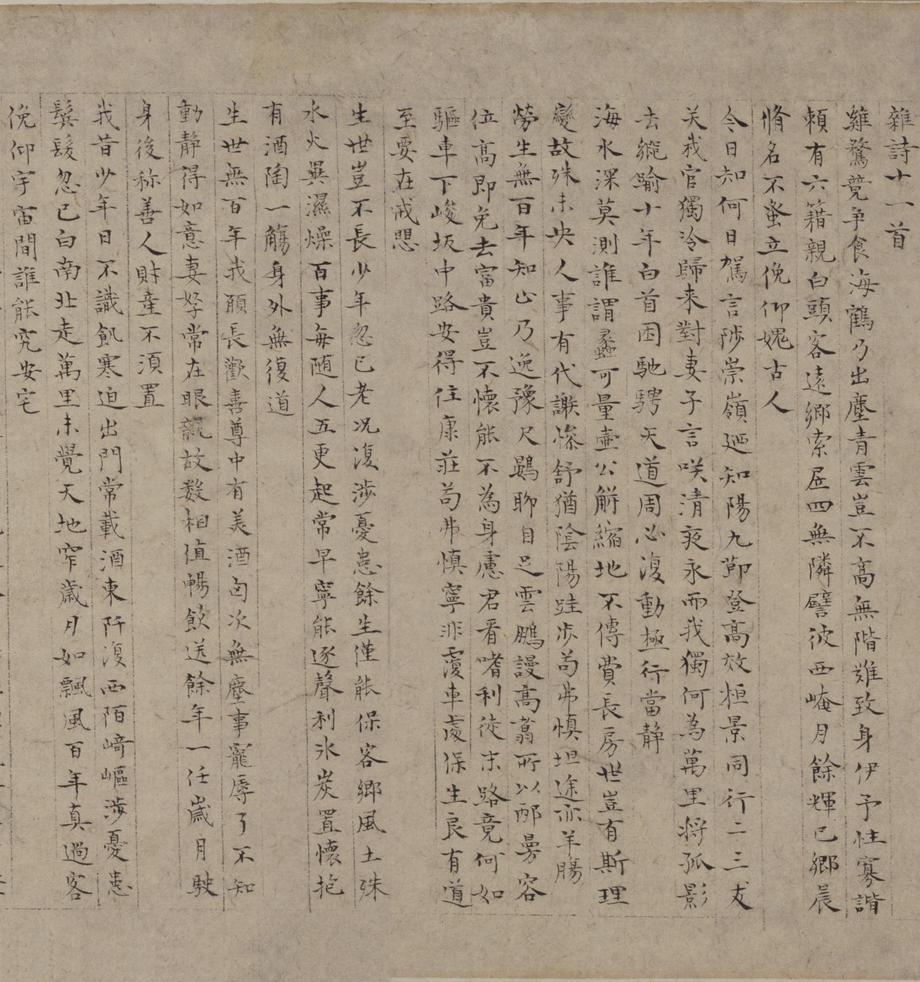 雜詩十一首
雞鶩競争食海鶴乃出塵青雲豈不高無階難致身伊予性寡諧
頼有六籍親白頭客遠鄉索居四無隣譬彼西崦月餘輝已鄉晨
脩名不蚤立俛仰媿古人
今日知何日駕言陟崇嶺廼知陽九節登高效桓景同行二三友
关我官獨冷歸来對妻子言咲清夜永而我獨何為萬里将孤影
去縱踰十年白首困馳騁天道周必復動極行當静
海水深莫測誰謂蠡可量壷公解縮地不傳費長房世豈有斯理
變故殊未央人事有代謝慘舒猶陰陽跬步苟弗慎坦途亦羊腸
勞生無百年知止乃逸豫尺鷃聊自足雲鵬謾高翥所以邴曼容
位高即免去富貴豈不懷能不為身慮君看嗜利徒末路竟何如
驅車下峻坂中路安得住康莊苟弗慎寧非覆車處保生良有道
至要在戒懼
生世豈不長少年忽已老况復涉憂患餘生僅能保客鄉風土殊
水火異濕燥百事每随人五更起常早寧能逐聲利氷炭置懷抱
有酒陶一觴身外無復道
生世無百年我願長歡喜尊中有美酒匈次無塵事寵辱了不知
動靜得如意妻孥常在眼親故数相值暢飲送餘年一任歲月駛
身後称善人財產不須置
我昔少年日不識飢寒迫出門常載酒東阡復西陌﨑嶇涉憂患
鬚髮忽已白南北走萬里未覺天地窄歲月如飄風百年真過客
俛仰宇宙間誰能究安宅